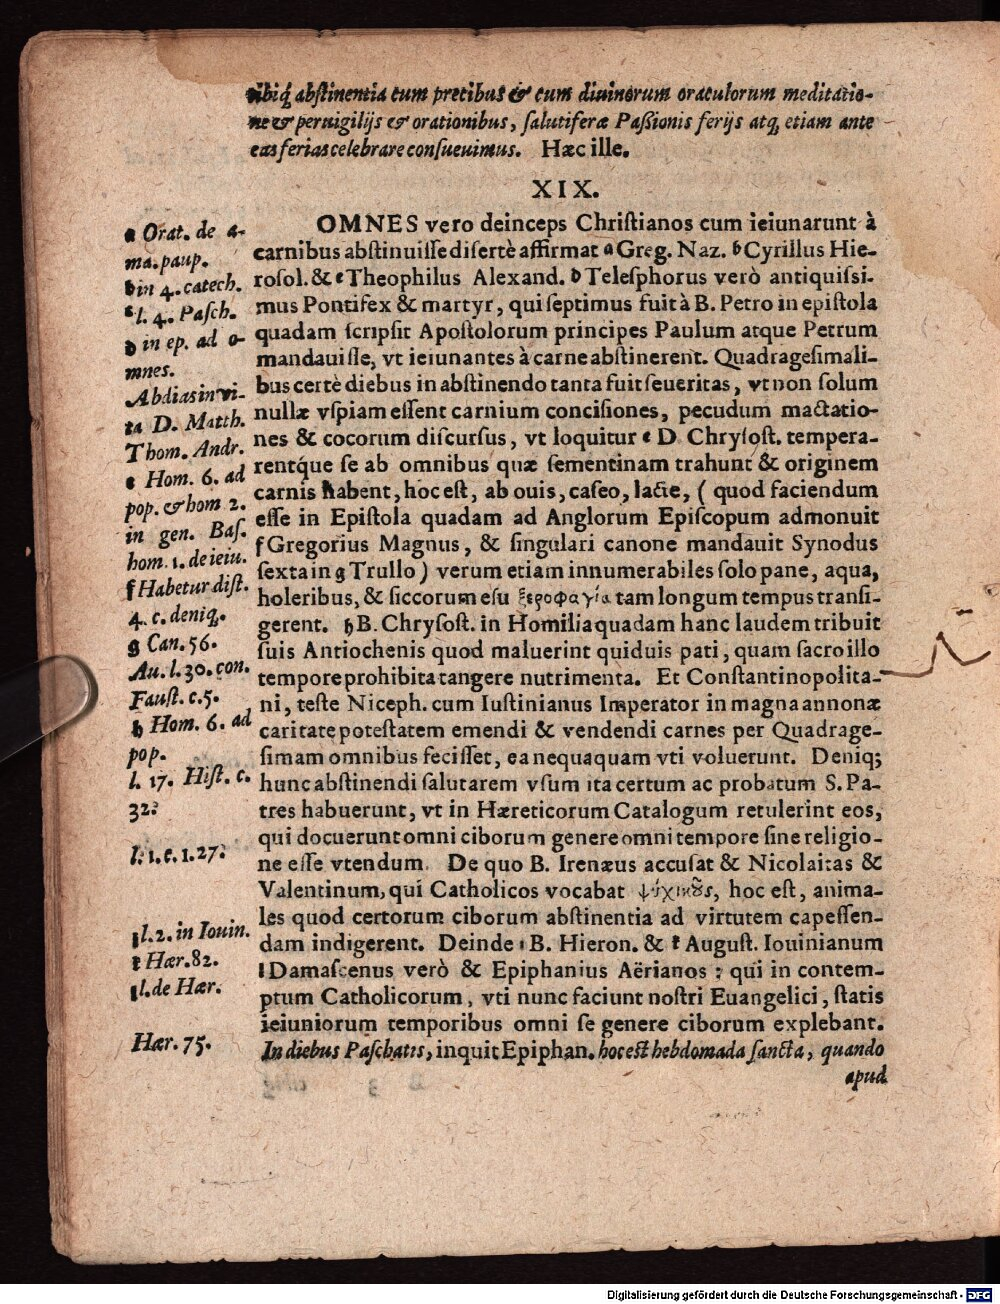 ibiq́ abſtinentia cum precibus & cum diuinorum oraculorum meditatio-
ne & peruigilijs & orationibus, ſalutiferæ Paßionis ferijs atq́ etiam ante
eas ferias celebrare conſueuimus. Hæc ille.
XIX.
OMNES vero deinceps Chriſtianos cum ieiunarunt à
carnibus abſtinuiſſe diſertè affirmat a Greg. Naz. b Cyrillus Hie-
roſol. & c Theophilus Alexand. d Teleſphorus verò antiquiſsi-
mus Pontifex & martyr, qui ſeptimus fuit à B. Petro in epiſtola
quadam ſcripſit Apoſtolorum principes Paulum atque Petrum
mandauiſſe, vt ieiunantes à carne abſtinerent. Quadrageſimali-
bus certè diebus in abſtinendo tanta fuit ſeueritas, vt non ſolum
nullæ vſpiam eſſent carnium conciſiones, pecudum mactatio-
nes & cocorum diſcurſus, vt loquitur e D. Chryſoſt. tempera-
rentq́ue ſe ab omnibus quæ ſementinam trahunt & originem
carnis habent, hoc eſt, ab ouis, caſeo, lacte, ( quod faciendum
eſſe in Epiſtola quadam ad Anglorum Epiſcopum admonuit
f Gregorius Magnus, & ſingulari canone mandauit Synodus
ſexta in g Trullo ) verum etiam innumerabiles ſolo pane, aqua,
holeribus, & ſiccorum eſu ξεροφαγία tam longum tempus tranſi-
gerent. h B. Chryſoſt. in Homilia quadam hanc laudem tribuit
ſuis Antiochenis quod maluerint quiduis pati, quam ſacro illo
tempore prohibita tangere nutrimenta. Et Conſtantinopolita-
ni, teſte Niceph. cum Iuſtinianus Imperator in magna annonæ
caritate poteſtatem emendi & vendendi carnes per Quadrage-
ſimam omnibus feciſſet, ea nequaquam vti voluerunt. Deniq;
hunc abſtinendi ſalutarem vſum ita certum ac probatum S. Pa-
tres habuerunt, vt in Hæreticorum Catalogum retulerint eos,
qui docuerunt omni ciborum genere omni tempore ſine religio-
ne eſſe vtendum. De quo B. Irenæus accuſat & Nicolaitas &
Valentinum, qui Catholicos vocabat ψύχικȣ̃ς, hoc eſt, anima-
les quod certorum ciborum abſtinentia ad virtutem capeſſen-
dam indigerent. Deinde i B. Hieron. & k Auguſt. Iouinianum
l Damaſcenus verò & Epiphanius Aërianos : qui in contem-
ptum Catholicorum, vti nunc faciunt noſtri Euangelici, ſtatis
ieiuniorum temporibus omni ſe genere ciborum explebant.
In diebus Paſchatis, inquit Epiphan. hoc eſt hebdomada ſancta, quando
apud
a Orat. de a-
ma. paup.
b in 4. catech.
c l. 4. Paſch.
d in ep. ad o-
mnes.
Abdias in vi-
ta D. Matth.
Thom. Andr.
e Hom. 6. ad
pop. & hom 2.
in gen. Baſ.
hom. 1. de ieiu.
f Habetur diſt.
4. c. deniq.
g Can. 56.
Au. l. 30. con.
Fauſt. c. 5.
h Hom. 6. ad
pop.
l. 17. Hiſt. c.
32.
l. 1. c. 1. 27.
i l. 2. in Iouin.
k Hær. 82.
l l. de Hær.
Hær. 75.
Digitalisierung gefördert durch die Deutsche Forschungsgemeinschaft - DFG